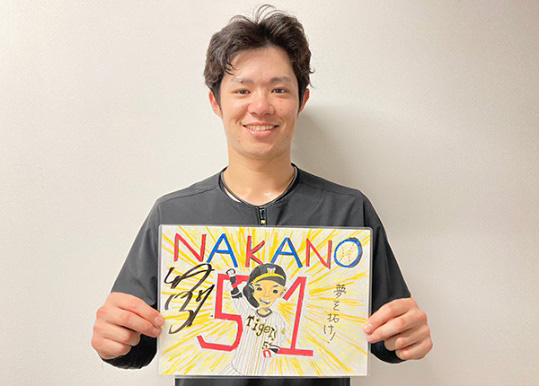 NAKANO
51
夢を拓け!
Tigers